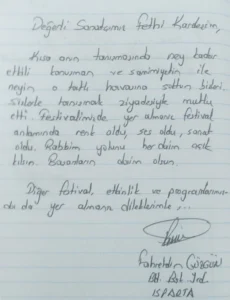 Değerli Sanatçımız Fethi Kardeşim,
Kısa anın tanımasında ney kadar
etkili tanıman ve samimiyetin ile
neyin o tatlı havasına sattın bizleri.
Sizlerle tanışmak ziyadesiyle mutlu
etti. Festivalimizde yer almanız festival
anlamında renk oldu, ses oldu, sanat
oldu. Rabbim yolunu her daim açık
kılsın. Başarıların daim olsun.
Diğer festival, etkinlik ve programlarımız-
da da yer almanız dileklerimle,...
Fahrettin GÖZGÜN
ISPARTA